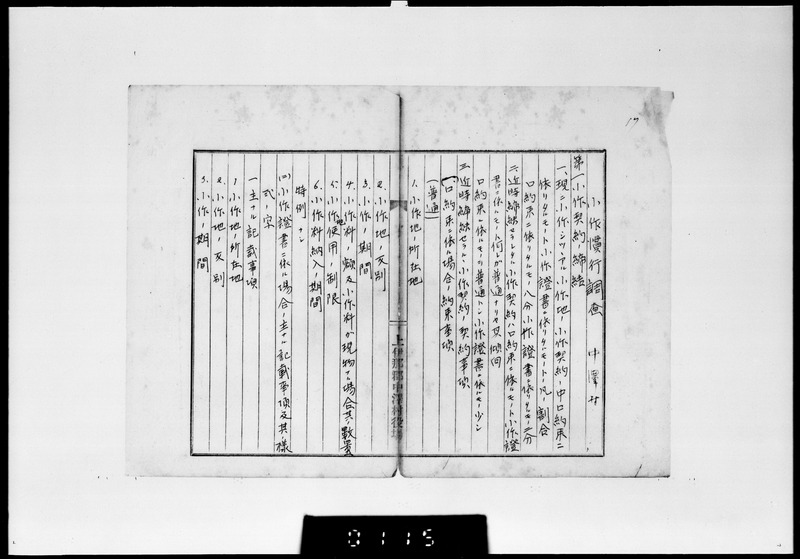 17
小作慣行調査　中澤村
第一小作契約締結
一、現ニ小作シツヽアル小作地ノ小作契約ノ中口約束ニ
依リタルモノト小作證書ニ依リタルモノトノ凡ノ割合
口約束ニ依リタルモノ八分小作證書ニ依リタルモノ二分
二、近時締結セラレタル小作契約ハ口約束ニ依ルモノト小作證
書ニ依ルモノト何レガ普通ナリヤ及傾向
口約束ニ依ルモノ普通ニシテ小作證書ニ依ルモノ少シ
三、近時締結セラルヽ小作契約ノ契約事項
(一)口約束ニ依ル場合ノ約束事項
(普通)
1、小作地ノ所在地
2、小作地ノ反別
3、小作ノ期間
4、小作料ノ額及小作料ガ現物ナル場合其ノ數量
5、小作地使用ノ制限
6、小作料納入ノ期間
特例　ナシ
(二)小作證書ニ依ル場合ノ主ナル記載事項及其ノ樣
式　寫
一 主ナル記載事項
1、小作地ノ所在地
2、小作地ノ反別
3、小作ノ期間
上伊那郡中澤村役場
0115